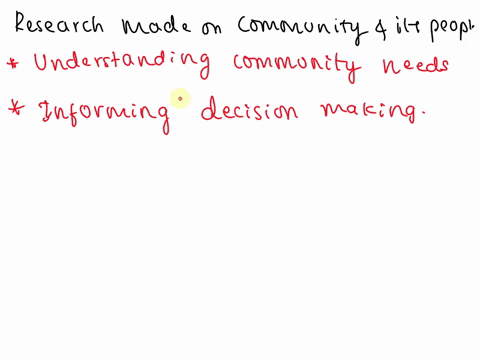 Research made on community & its peopl
* Understanding community needs
* Informing decision making.